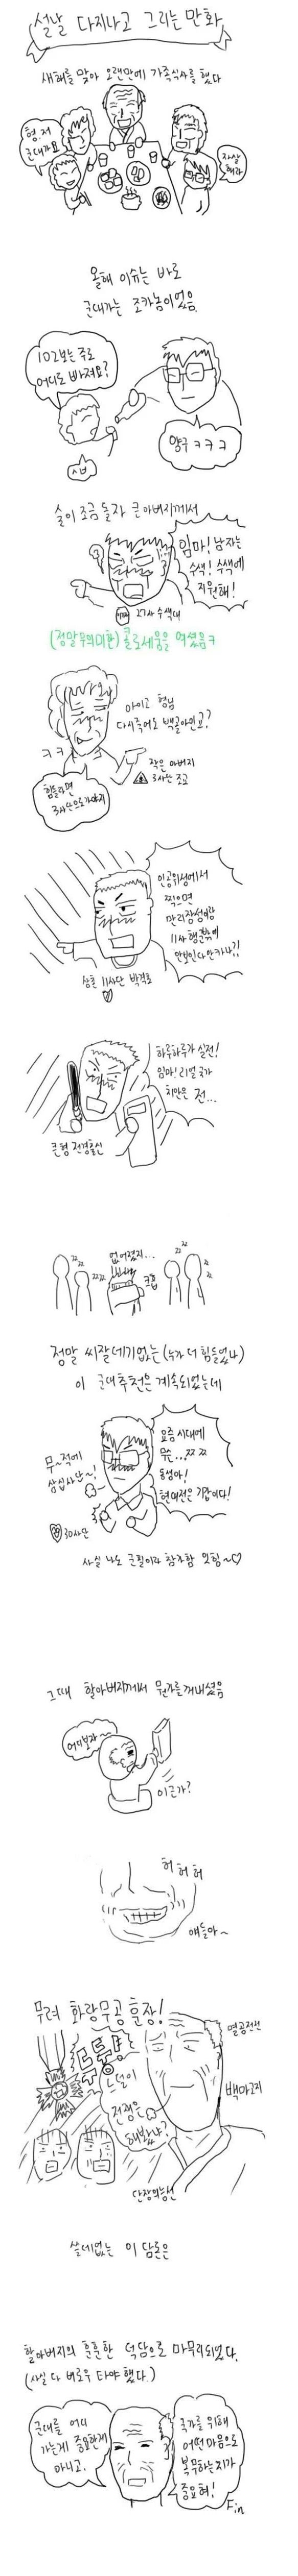 설날 다지나고 그리는 만화
새해를 맞아 오랜만에 가족식사를 했다
형. 저
군대가요
자살
해라
올해 이슈는 바로
군대가는 조카놈이었음.
102보는 주로
어디로 빠져요?
양구 ㅋㅋㅋ
술이 조금 돌자 큰아버지께서
임마! 남자는
수색! 수색에
지원해!
27사 수색대
(정말무의미한) 콜로세움을 여셨음ㅋ
아이고 형님
다시죽어도 백골아인교?
ㅋㅋ
작은 아버지
3사단 조교
힘들라면
3사단으로가야지
인공위성에서
찍으면
만리장성이랑
11사 행군밖에
안보인다안카나?!
삼촌 11사단 박격포
하루하루가 실전!
임마! 리얼 국가
치안은 전...
큰형 전경출신
없어졌지...
크흡
ㅉㅉ
정말 씨잘데기없는 (누가 더 힘들었나)
이 군대추천은 계속되었는데
무~적에
삼십사단~!
요즘시대에
무슨... ㅉㅉ
동생아!
현대전은 기갑이다!
30사단
사실 나도 군필이라 참가함 잇힝~♡
그때 할아버지께서 뭔가를꺼내셨음
어디보자~
이근가?
허 허 허
얘들아~
무려 화랑무공훈장!
두둥!
느덜이
전쟁은
해봤냐?
멸공전선
백마고지
단장의능선
쓸데없는 이 담론은
할아버지의 훈훈한 덕담으로 마무리되었다.
(사실 다 버로우 타야 했다.)
군대를 어디
가는게 중요한게
아니고.
국가를 위해
어떤마음으로
복무하는지가
중요혀!
Fin